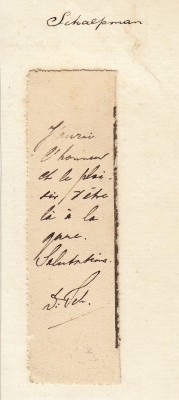 Schaepman
J'aurai
l'honneur
et le plai-
sir d'être
là à la
gare.
Salutations.
Sch.